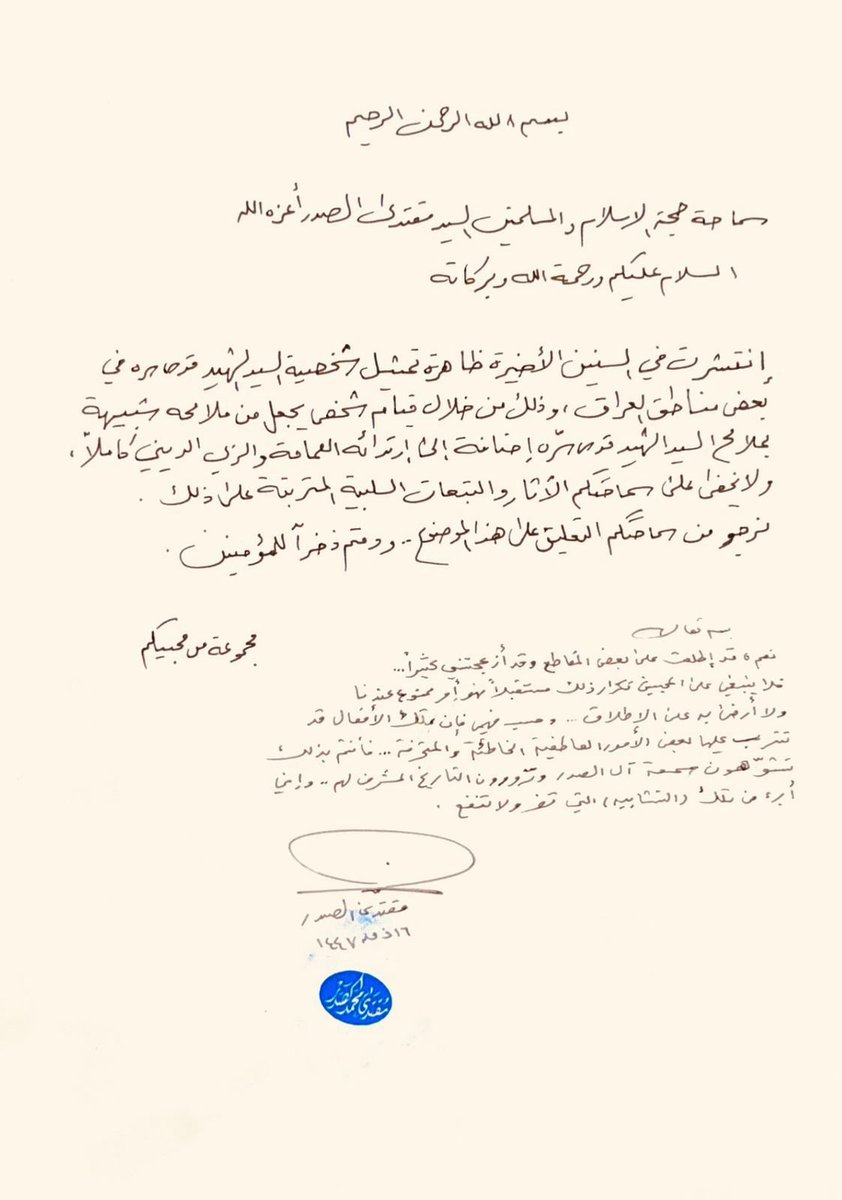 بسم الله الرحمن الرحيم
سماحة حجة الاسلام والمسلمين السيد مقتدى الصدر أعزه الله
السلام عليكم ورحمة الله وبركاته
إنتشرت في السنين الأخيرة ظاهرة تمثيل شخصية السيد الشهيد قدس سره في
بعض مناطق العراق، وذلك من خلال قيام شخص يجعل من ملامحه شبيهة
بملامح السيد الشهيد قدس سرّه إضافة إلى ارتدائه العمامة والزي الديني كاملاً،
ولا يخفى على سماحتكم الآثار والتبعات السلبية المترتبة على ذلك .
نرجو من سماحتكم التعليق على هذا الموضوع .. ودمتم ذخراً للمؤمنين .
مجموعة من محبيكم
بسمه تعالى
نعم، قد إطلعت على بعض المقاطع وقد أزعجتني كثيراً...
فلا ينبغي على المحبين تكرار ذلك مستقبلاً فهو أمر ممنوع عندنا
ولا أرضى به على الإطلاق ... وحسب فهمي فإن تلك الأفعال قد
تترتب عليها بعض الأمور العاطفية الخاطئة والمنحرفة ... فأنتم بذلك
تشوّهون سمعة آل الصدر وتزورون التاريخ المشرف لهم .. وإني
أبرء من تلك (التشابيه) التي تضر ولا تنفع .
مقتدى الصدر
١٤٤٧
مقتدى محمد الصدر